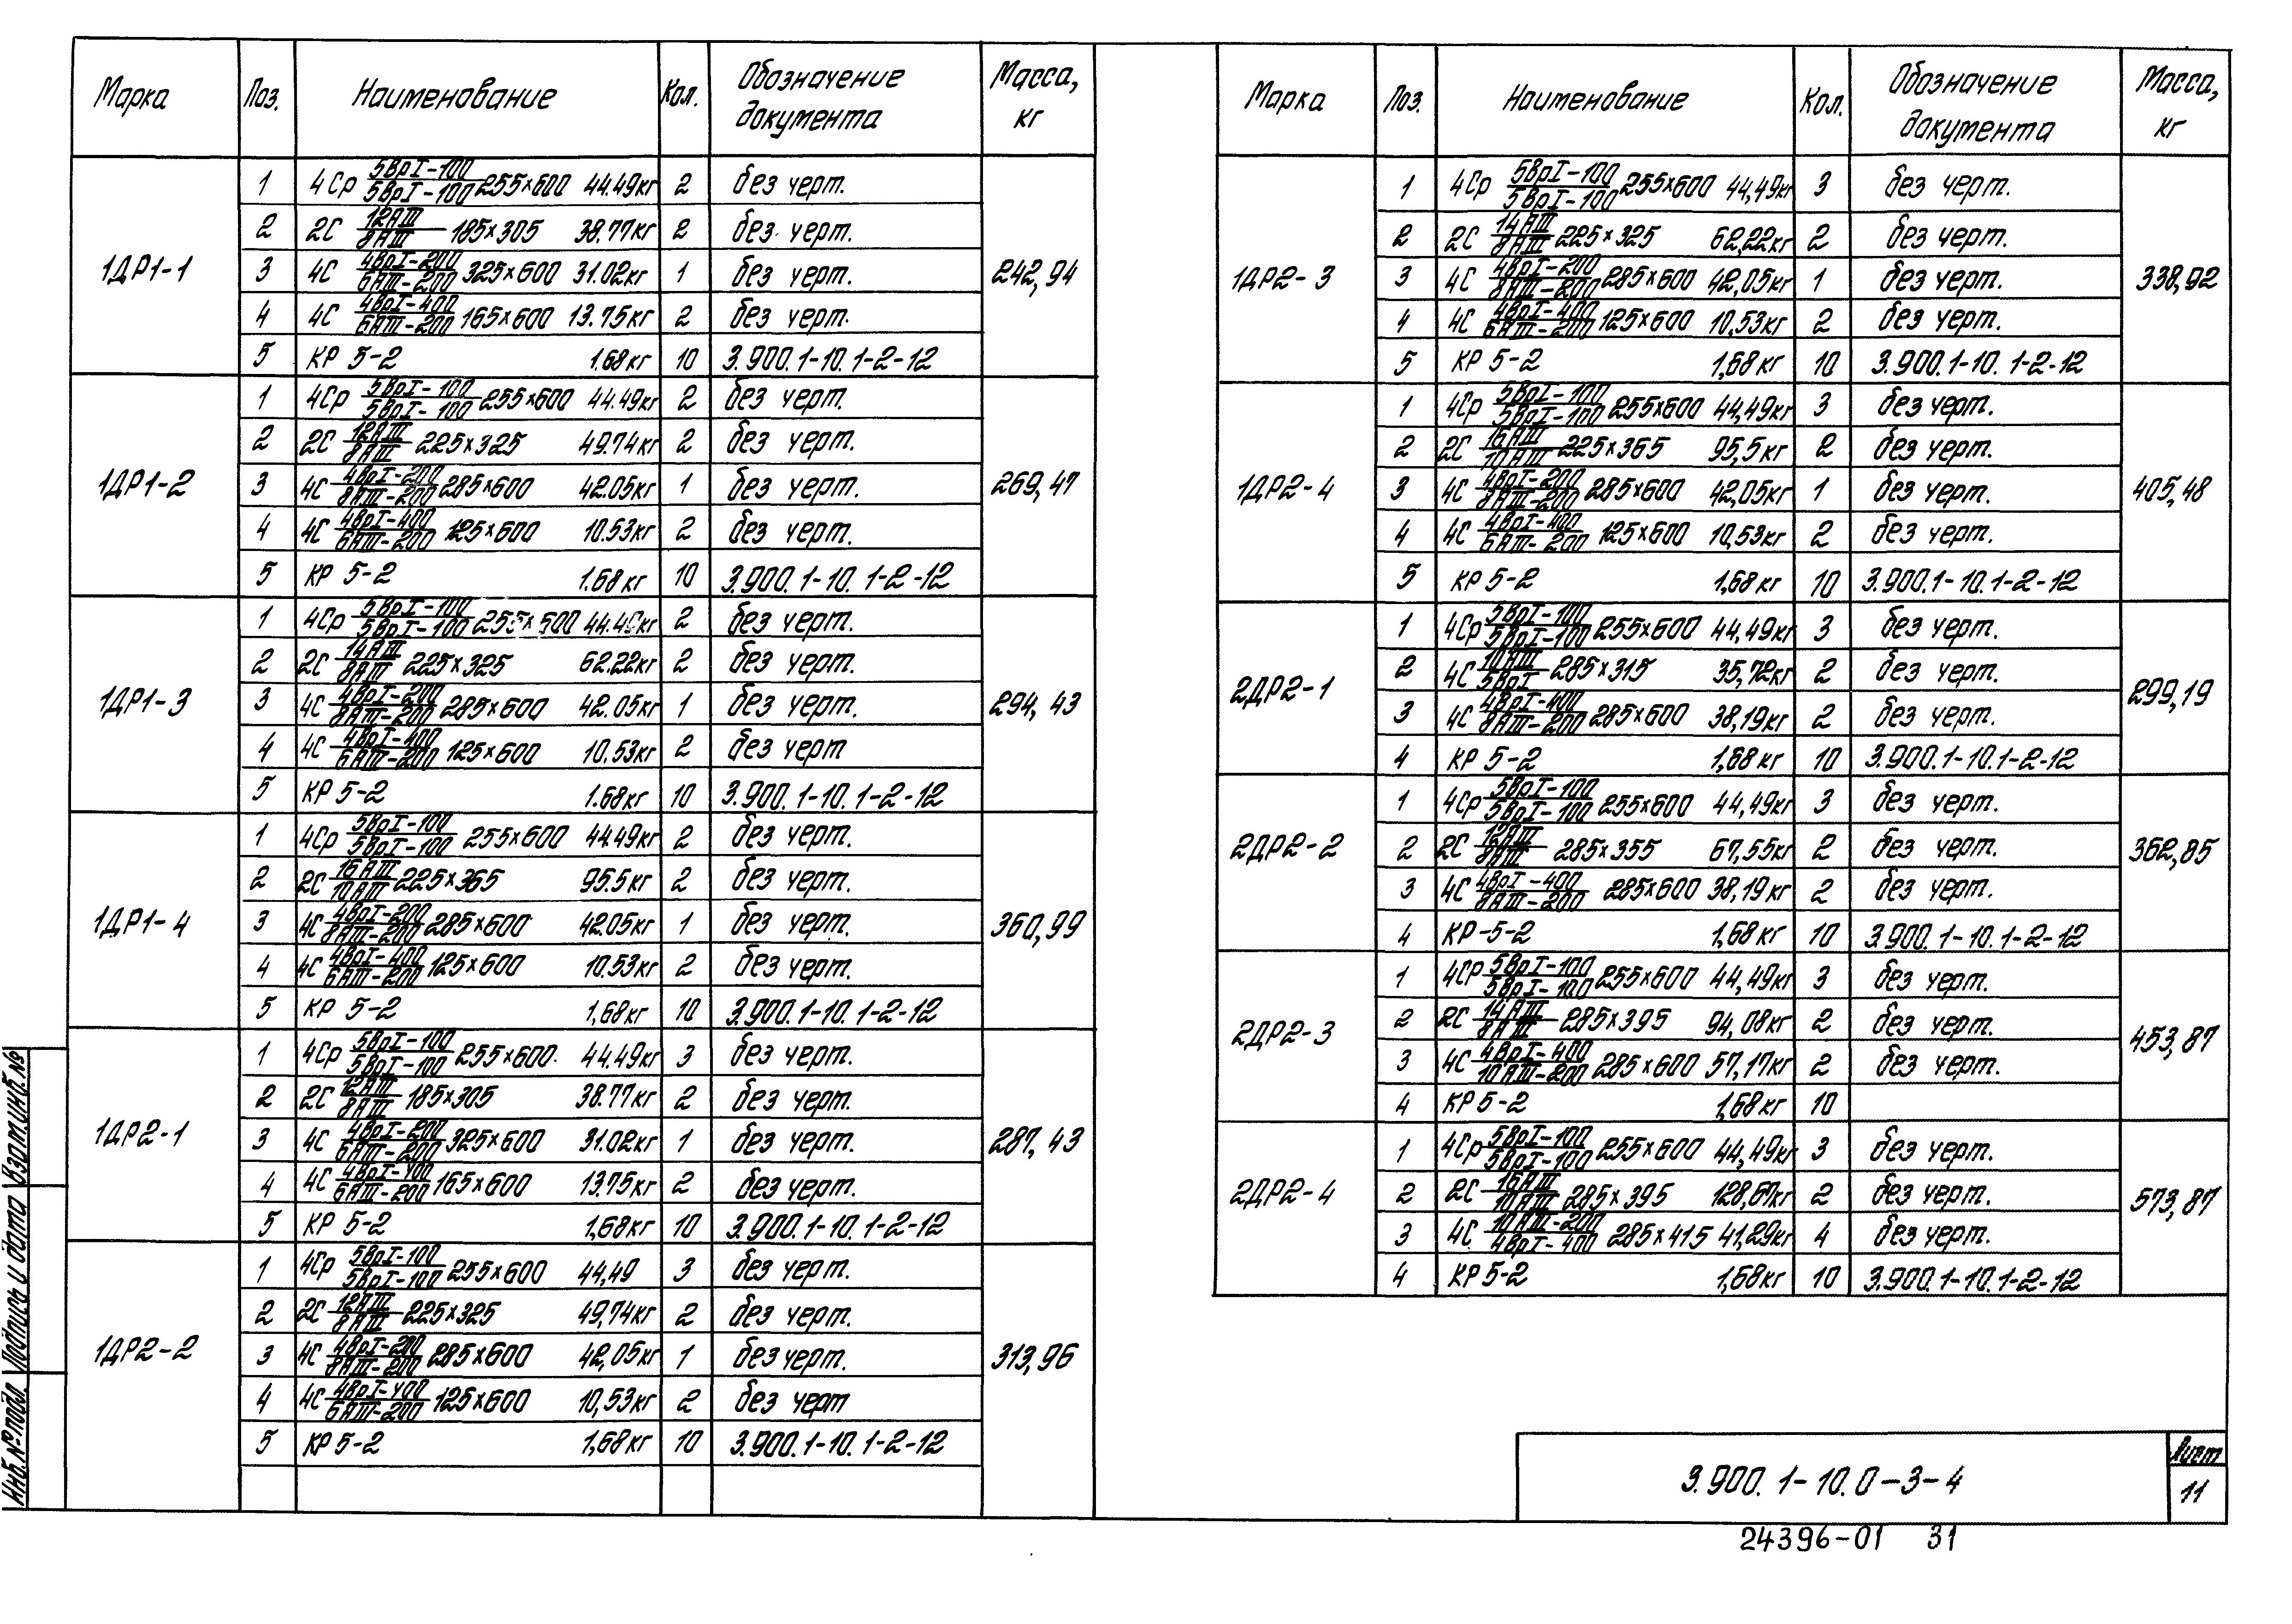 Марка Поз. Наименование Кол. Обозначение документа Масса, кг
1ДР1-1 242,94
1 4Ср 5ВрI-100/5ВрI-100 255×600 44.49кг 2 без черт.
2 2С 12АIII/8АIII 185×305 38.77кг 2 без черт.
3 4С 4ВрI-200/6АIII-200 325×600 31.02кг 1 без черт.
4 4С 4ВрI-400/6АIII-200 165×600 13.75кг 2 без черт.
5 КР 5-2 1.68кг 10 3.900.1-10.1-2-12
1ДР1-2 269,47
1 4Ср 5ВрI-100/5ВрI-100 255×600 44.49кг 2 без черт.
2 2С 12АIII/8АIII 225×325 49.74кг 2 без черт.
3 4С 4ВрI-200/8АIII-200 285×600 42.05кг 1 без черт.
4 4С 4ВрI-400/6АIII-200 125×600 10.53кг 2 без черт.
5 КР 5-2 1.68кг 10 3.900.1-10.1-2-12
1ДР1-3 294,43
1 4Ср 5ВрI-100/5ВрI-100 255×600 44.49кг 2 без черт.
2 2С 14АIII/8АIII 225×325 62.22кг 2 без черт.
3 4С 4ВрI-200/8АIII-200 285×600 42.05кг 1 без черт.
4 4С 4ВрI-400/6АIII-200 125×600 10.53кг 2 без черт
5 КР 5-2 1.68кг 10 3.900.1-10.1-2-12
1ДР1-4 360,99
1 4Ср 5ВрI-100/5ВрI-100 255×600 44.49кг 2 без черт.
2 2С 16АIII/10АIII 225×365 95.5кг 2 без черт.
3 4С 4ВрI-200/8АIII-200 285×600 42.05кг 1 без черт.
4 4С 4ВрI-400/6АIII-200 125×600 10.53кг 2 без черт.
5 КР 5-2 1,68кг 10 3.900.1-10.1-2-12
1ДР2-1 287,43
1 4Ср 5ВрI-100/5ВрI-100 255×600 44.49кг 3 без черт.
2 2С 12АIII/8АIII 185×305 38.77кг 2 без черт.
3 4С 4ВрI-200/6АIII-200 325×600 31.02кг 1 без черт.
4 4С 4ВрI-400/6АIII-200 165×600 13.75кг 2 без черт.
5 КР 5-2 1,68кг 10 3.900.1-10.1-2-12
1ДР2-2 313,96
1 4Ср 5ВрI-100/5ВрI-100 255×600 44,49 3 без черт.
2 2С 12АIII/8АIII 225×325 49,74кг 2 без черт.
3 4С 4ВрI-200/8АIII-200 285×600 42,05кг 1 без черт.
4 4С 4ВрI-400/6АIII-200 125×600 10,53кг 2 без черт
5 КР 5-2 1,68кг 10 3.900.1-10.1-2-12
Марка Поз. Наименование Кол. Обозначение документа Масса, кг
1ДР2-3 338,92
1 4Ср 5ВрI-100/5ВрI-100 255×600 44,49кг 3 без черт.
2 2С 14АIII/8АIII 225×325 62,22кг 2 без черт.
3 4С 4ВрI-200/8АIII-200 285×600 42,05кг 1 без черт.
4 4С 4ВрI-400/6АIII-200 125×600 10,53кг 2 без черт.
5 КР 5-2 1,68кг 10 3.900.1-10.1-2-12
1ДР2-4 405,48
1 4Ср 5ВрI-100/5ВрI-100 255×600 44,49кг 3 без черт.
2 2С 16АIII/10АIII 225×365 95,5кг 2 без черт.
3 4С 4ВрI-200/8АIII-200 285×600 42,05кг 1 без черт.
4 4С 4ВрI-400/6АIII-200 125×600 10,53кг 2 без черт.
5 КР 5-2 1,68кг 10 3.900.1-10.1-2-12
2ДР2-1 299,19
1 4Ср 5ВрI-100/5ВрI-100 255×600 44,49кг 3 без черт.
2 4С 10АIII/5ВрI 285×315 35,72кг 2 без черт.
3 4С 4ВрI-400/8АIII-200 285×600 38,19кг 2 без черт.
4 КР 5-2 1,68кг 10 3.900.1-10.1-2-12
2ДР2-2 362,85
1 4Ср 5ВрI-100/5ВрI-100 255×600 44,49кг 3 без черт.
2 2С 12АIII/8АIII 285×355 67,55кг 2 без черт.
3 4С 4ВрI-400/8АIII-200 285×600 38,19кг 2 без черт.
4 КР-5-2 1,68кг 10 3.900.1-10.1-2-12
2ДР2-3 453,87
1 4Ср 5ВрI-100/5ВрI-100 255×600 44,49кг 3 без черт.
2 2С 14АIII/8АIII 285×395 94,08кг 2 без черт.
3 4С 4ВрI-400/10АIII-200 285×600 57,17кг 2 без черт.
4 КР 5-2 1,68кг 10
2ДР2-4 573,87
1 4Ср 5ВрI-100/5ВрI-100 255×600 44,49кг 3 без черт.
2 2С 16АIII/10АIII 285×395 128,67кг 2 без черт.
3 4С 10АIII-200/4ВрI-400 285×415 41,29кг 4 без черт.
4 КР 5-2 1,68кг 10 3.900.1-10.1-2-12
Инв.№подл. Подпись и дата Взам.инв.№
3.900.1-10.0-3-4
Лист
11
24396-01 31